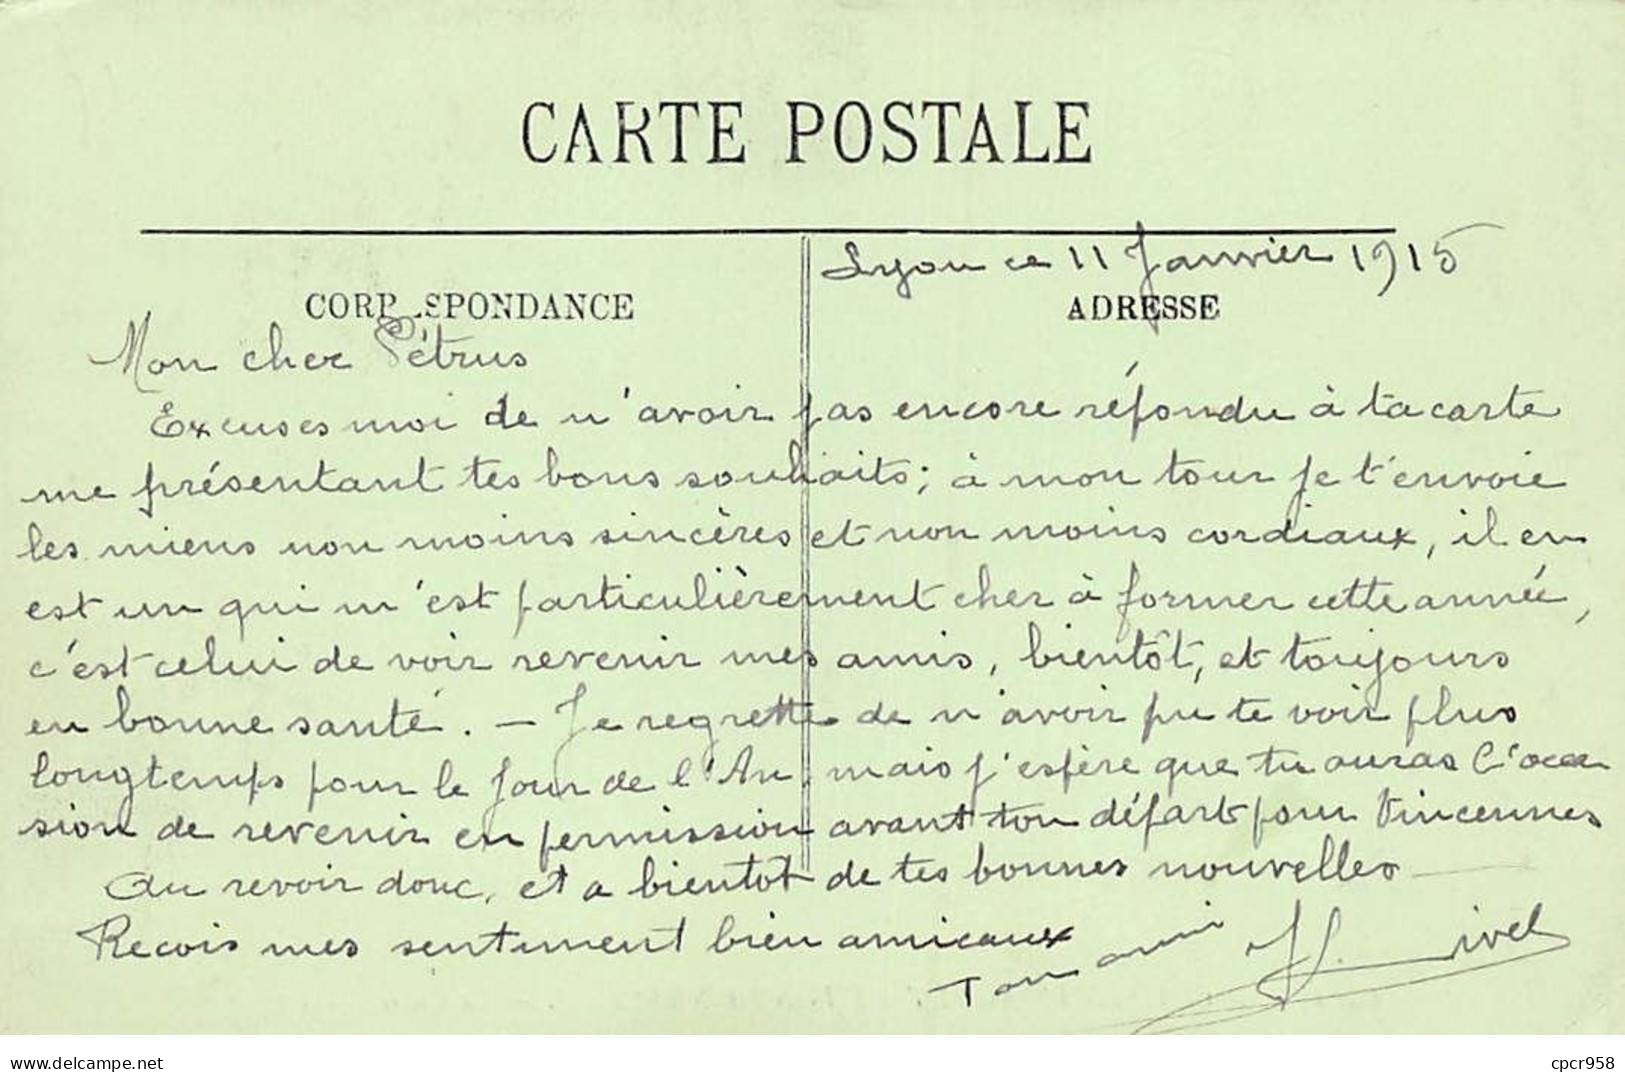 CARTE POSTALE
Lyon ce 11 Janvier 1915
CORRESPONDANCE
ADRESSE
Mon cher Pétrus
Excuses moi de n'avoir pas encore répondu à ta carte
me présentant tes bons souhaits; à mon tour je t'envoie
les miens non moins sincères et non moins cordiaux, il en
est un qui m'est particulièrement cher à former cette année,
c'est celui de voir revenir mes amis, bientôt, et toujours
en bonne santé. - Je regrette de n'avoir pu te voir plus
longtemps pour le jour de l'An, mais j'espère que tu auras l'occa
sion de revenir en permission avant ton départ pour Vincennes
Au revoir donc, et a bientot de tes bonnes nouvelles
Recois mes sentiment bien amicaux
Ton ami
delcampe.net
cpcr958